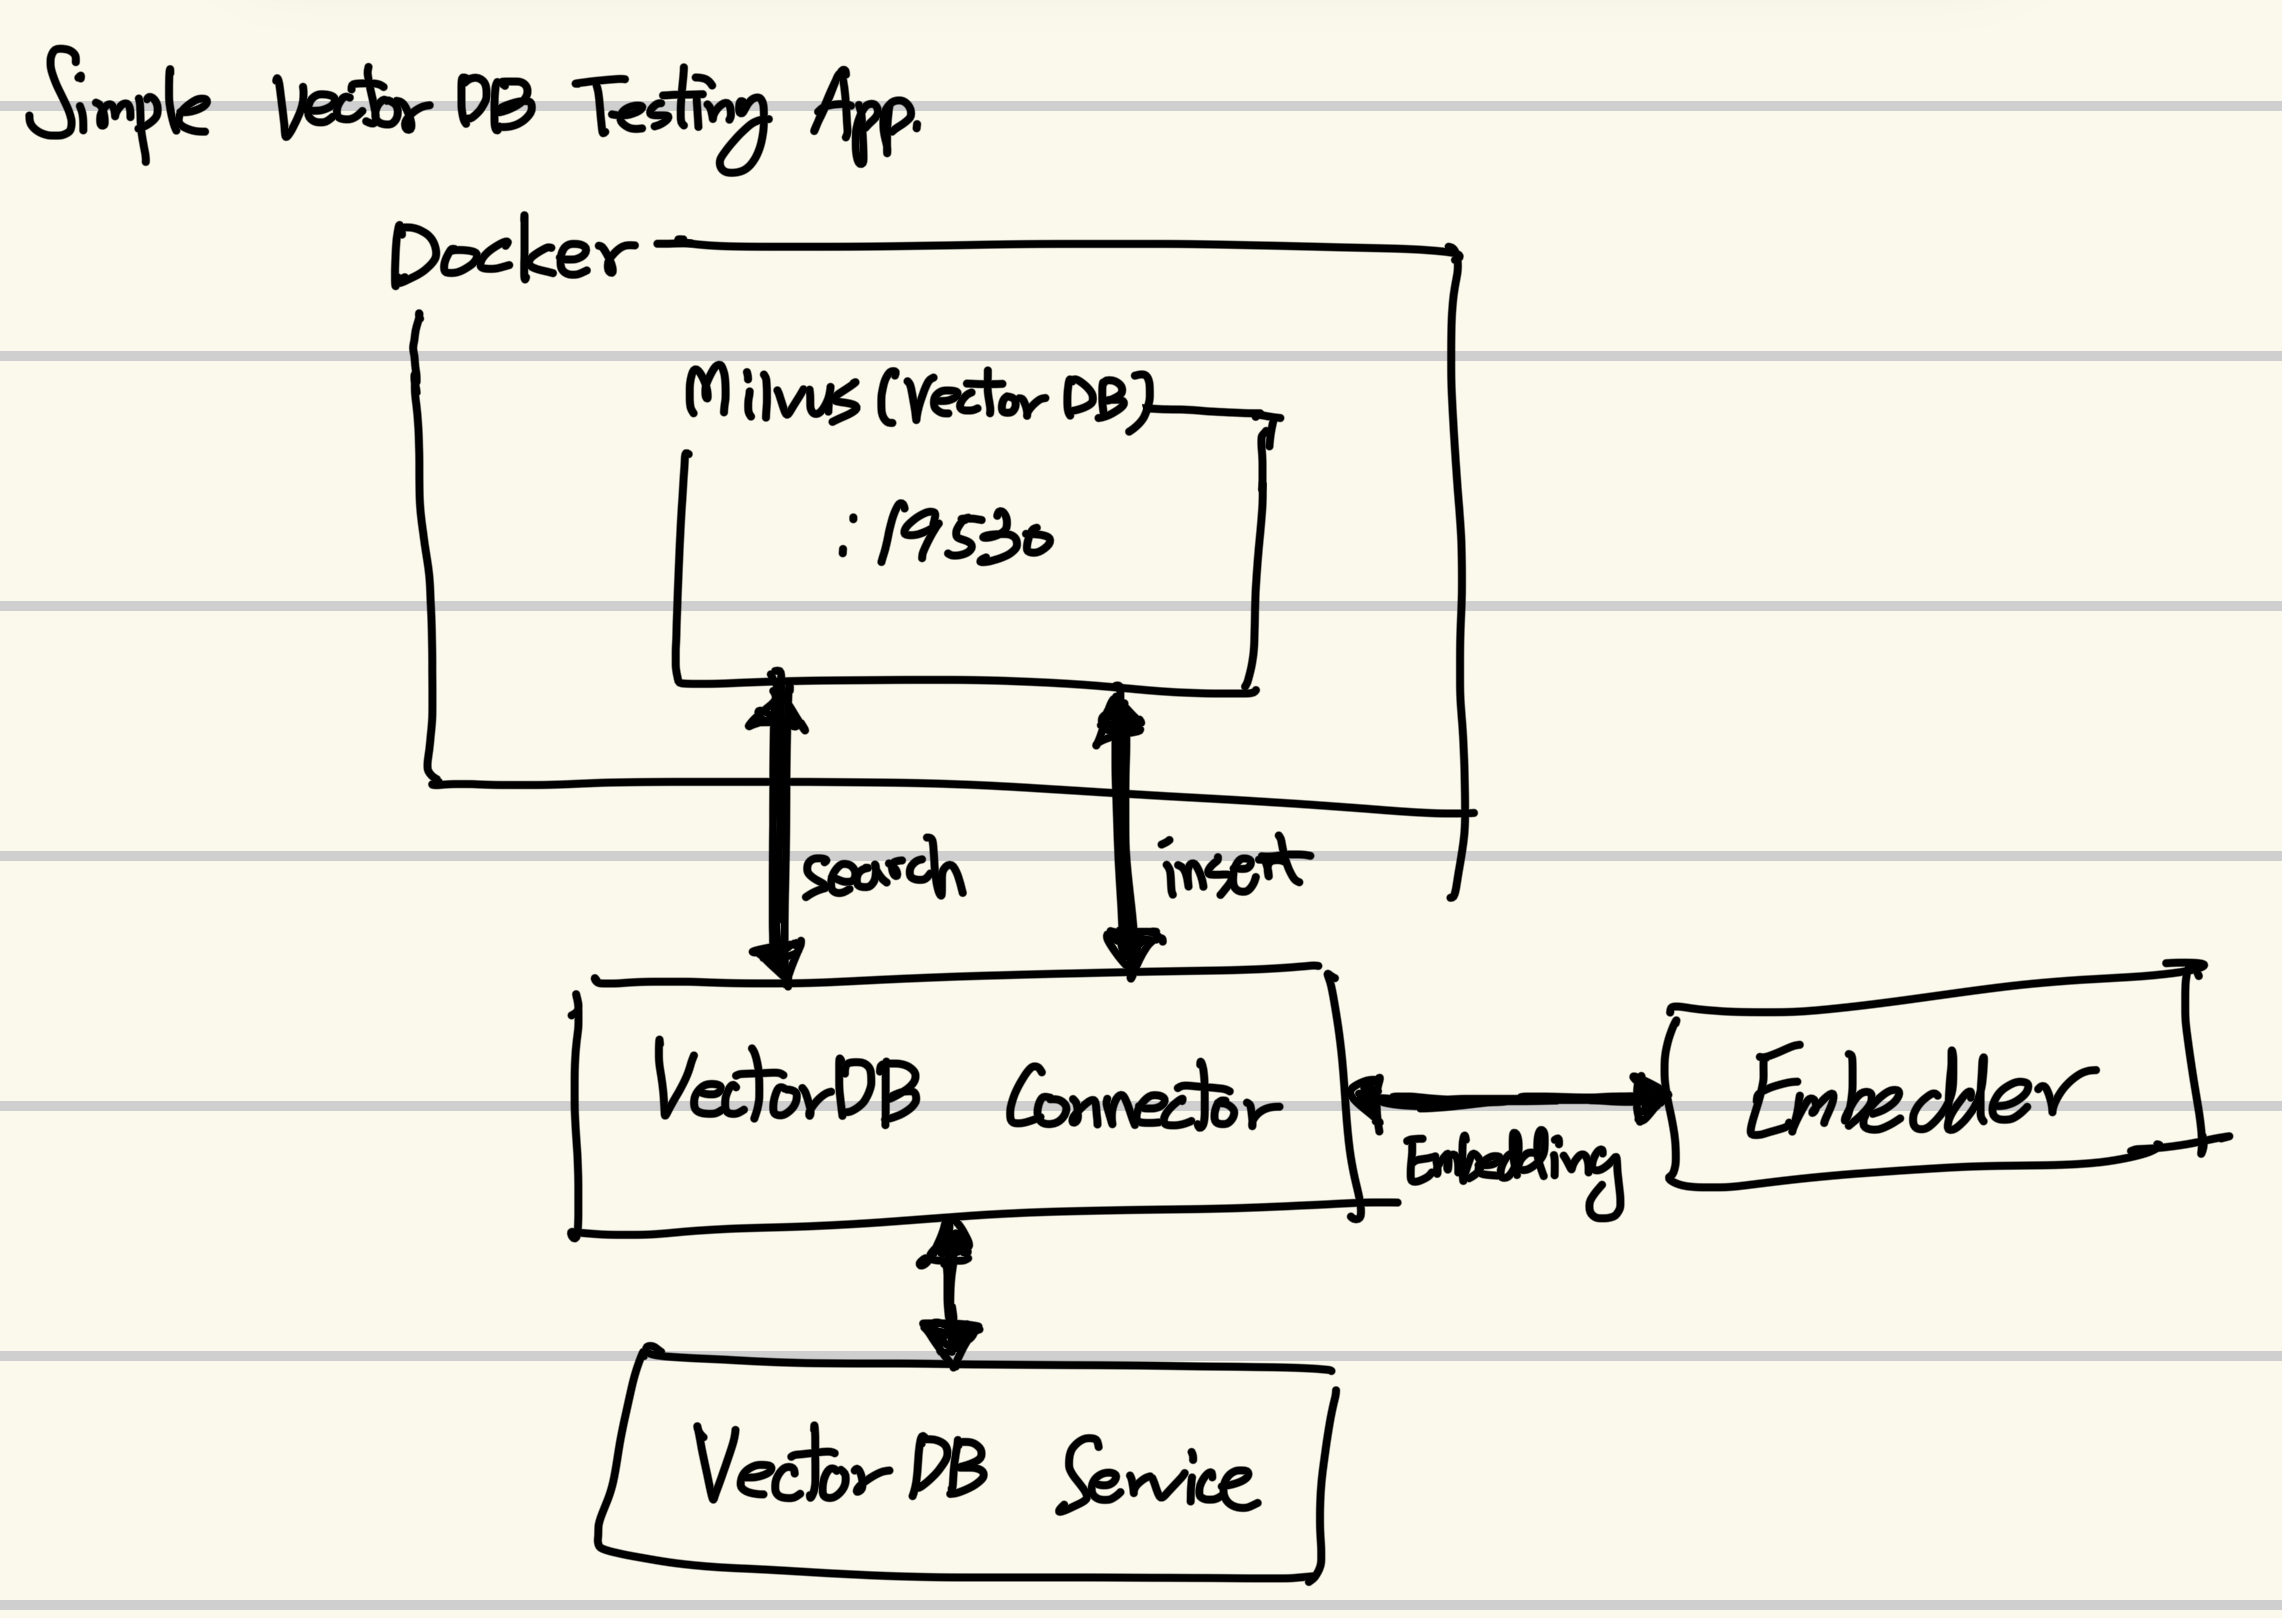 Simple Vector DB Testing App.
Docker
Milvus (Vector DB)
:19530
search
insert
VectorDB Connector
Embedder
Embedding
Vector DB Service